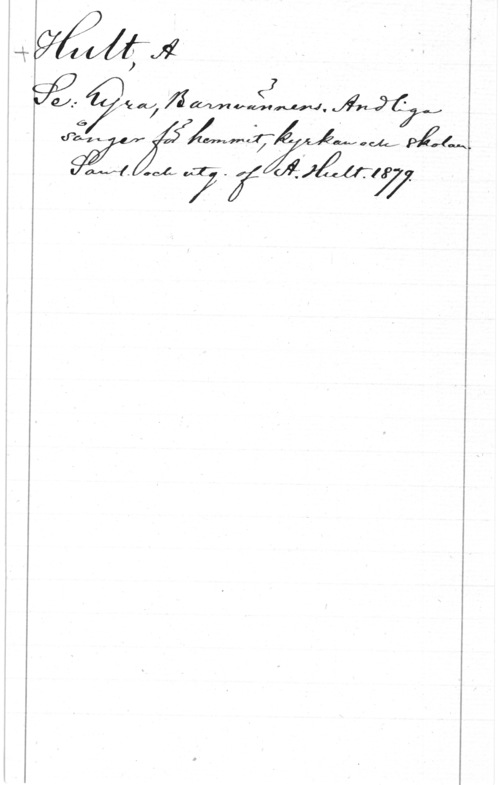 + Hult, A
Se: Lyra, Barnvännens. Andliga
sånger för hemmit, kyrkan och skolan.
Saml. och utg. af A. Hult. 1879.